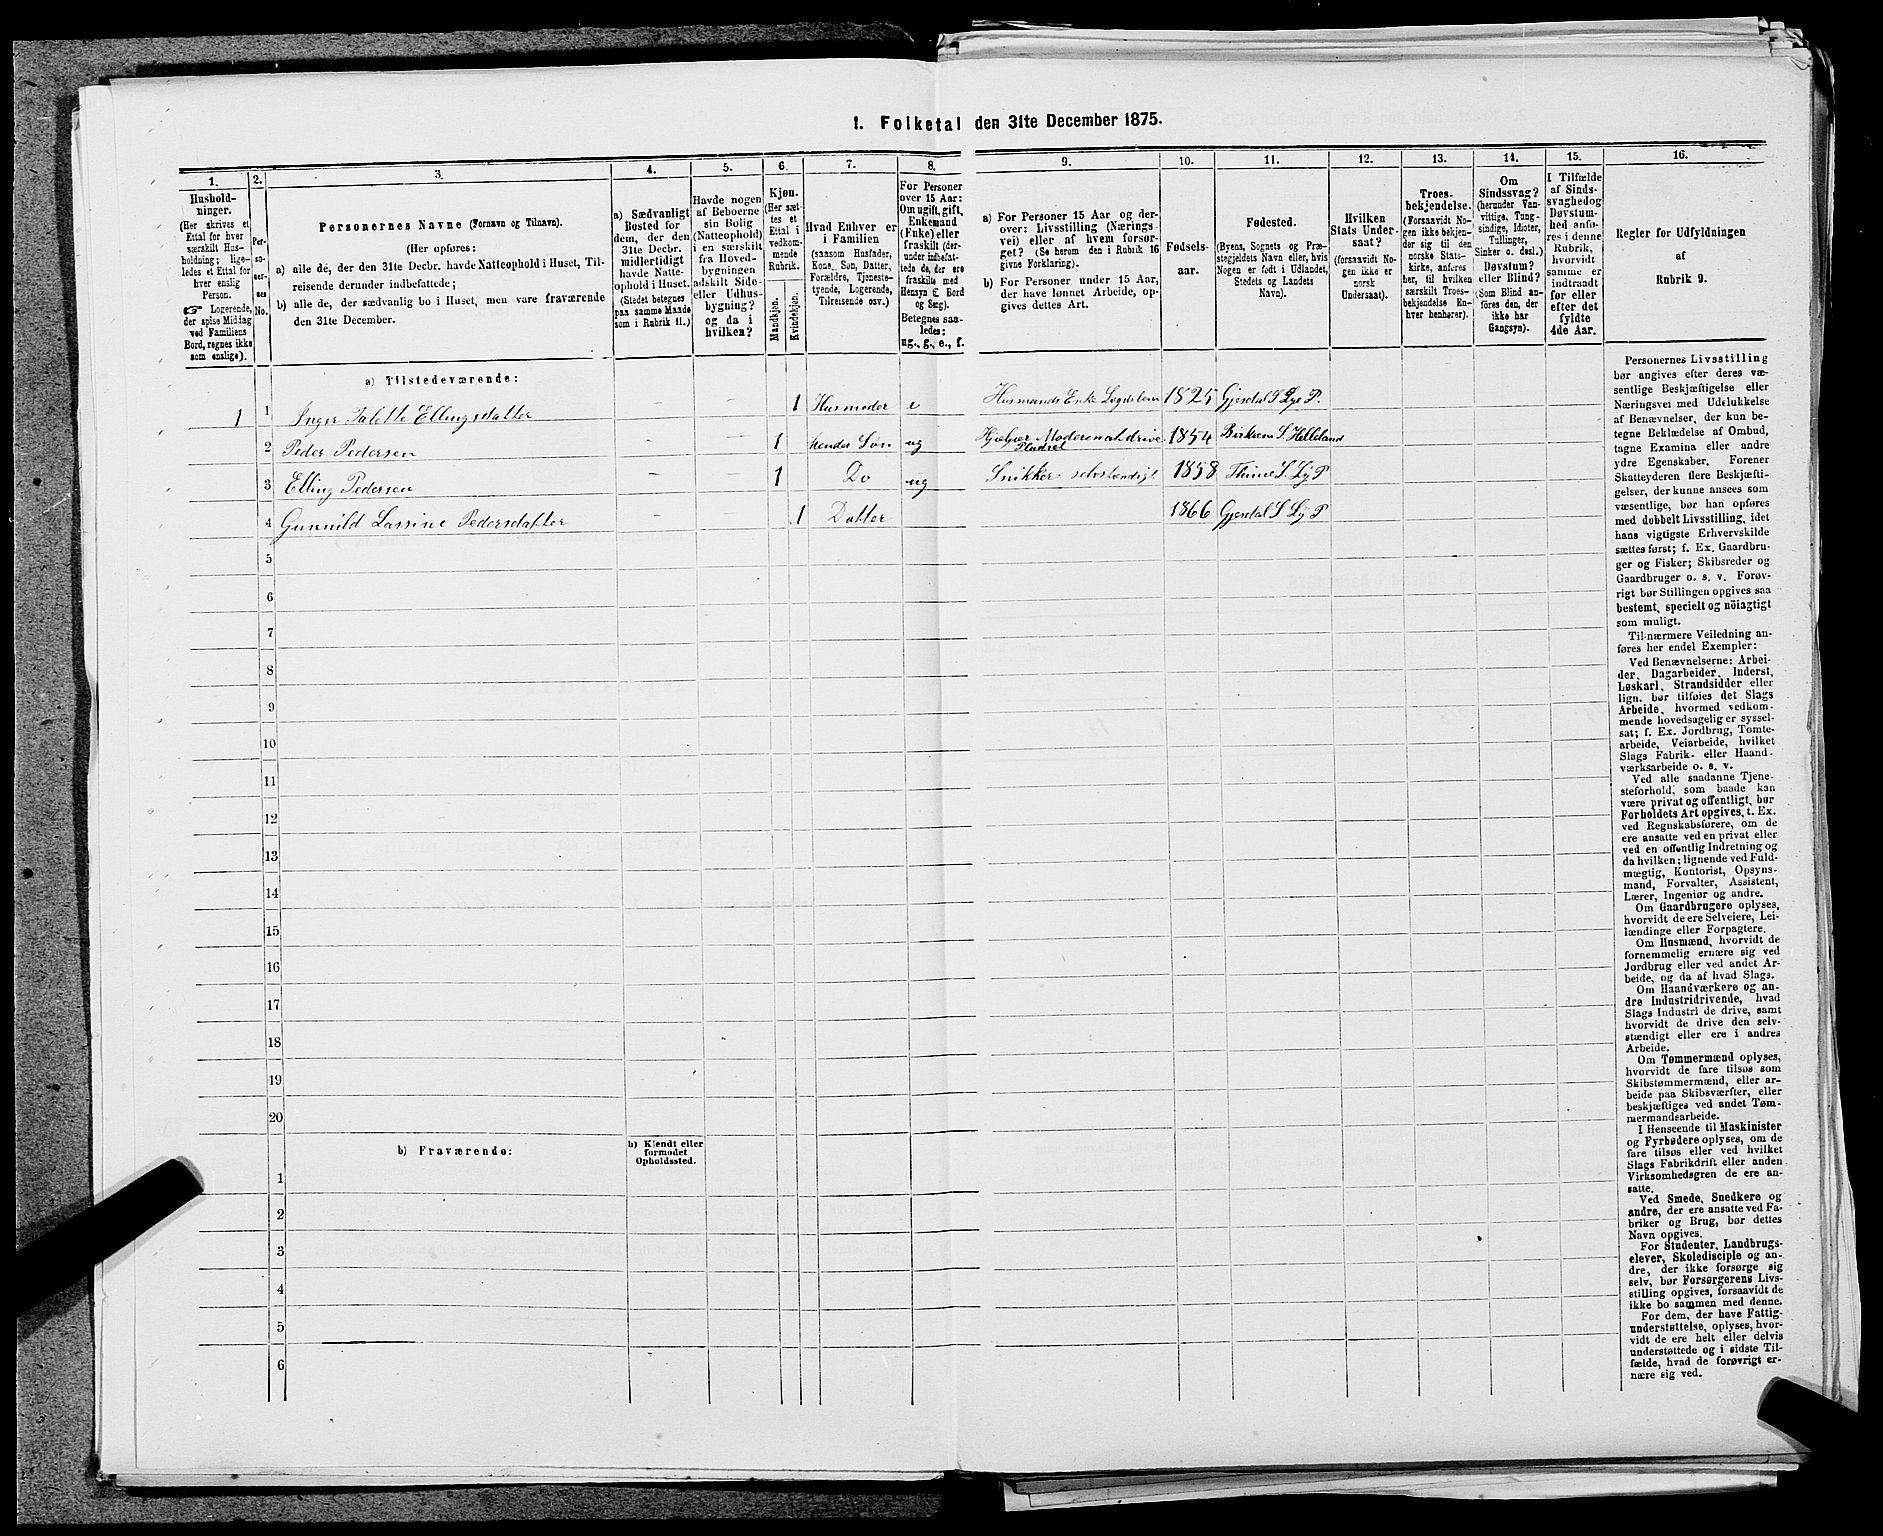 1. Folketal den 31te December 1875.
1. 2. 3. 4. 5. 6. 7. 8. 9. 10. 11. 12. 13. 14. 15. 16.
Hushold-
ninger.
(Her skrives et
Ettal for hver
særskilt Hus-
holdning; lige-
ledes et Ettal for
hver enslig
Person.
☞ Logerende,
der spise Middag
ved Familiens
Bord, regnes ikke
som enslige).
Per-
so-
ner-
nes
No.
Personernes Navne (Fornavn og Tilnavn).
(Her opføres:
a) alle de, der den 31te Decbr. havde Natteophold i Huset, Til-
reisende derunder indbefattede;
b) alle de, der sædvanlig bo i Huset, men vare fraværende
den 31te December.
a) Sædvanligt
Bosted for
dem, der den
31te Decbr.
midlertidigt
havde Natte-
ophold i Huset.
(Stedet betegnes
paa samme Maade
som i Rubrik 11.)
Havde nogen
af Beboerne
sin Bolig
(Natteophold)
i en særskilt
fra Hoved-
bygningen
adskilt Side-
eller Udhus-
bygning?
og da i
hvilken?
Kjøn.
(Her sæt-
tes et
Ettal i
vedkom-
mende
Rubrik.
Mandkjøn.
Kvindekjøn.
Hvad Enhver er
i Familien
(saasom Husfader,
Kone, Søn, Datter,
Forældre, Tjeneste-
tyende, Logerende,
Tilreisende osv.)
For Personer
over 15 Aar:
Om ugift, gift,
Enkemand
(Enke) eller
fraskilt (der-
under indbefat-
tede de, der ere
fraskilte med
Hensyn til Bord
og Seng).
Betegnes saa-
ledes:
ug., g., e., f.
a) For Personer 15 Aar og der-
over: Livsstilling (Nærings-
vei) eller af hvem forsør-
get? (Se herom den i Rubrik 16
givne Forklaring).
b) For Personer under 15 Aar,
der have lønnet Arbeide, op-
gives dettes Art.
Fødsels-
aar.
Fødested.
(Byens, Sognets og Præ-
stegjeldets Navn eller, hvis
Nogen er født i Udlandet,
Stedets og Landets
Navn).
Hvilken
Stats Under-
saat?
(forsaavidt No-
gen ikke er
norsk
Undersaat).
Troes-
bekjendelse.
(Forsaavidt No-
gen ikke bekjen-
der sig til den
norske Stats-
kirke, anføres
her, til hvilken
særskilt Troes-
bekjendelse En-
hver henhører).
Om
Sindssvag?
(herunder Van-
vittige, Tung-
sindige, Idioter,
Tullinger,
Sinker o. desl.)
Døvstum?
eller Blind?
(Som Blind an-
føres den, der
ikke har
Gangsyn).
I Tilfælde
af Sinds-
svaghed og
Døvstum-
hed anfø-
res i denne
Rubrik,
hvorvidt
samme er
indtraadt
før eller
efter det
fyldte
4de Aar.
Regler for Udfyldningen
af
Rubrik 9.
a) Tilstedeværende:
1 1 Inger Talette Ellingsdatter - - 1 Husmoder e Husmands Enke Logdslem 1825 Gjesdal S Lye P.
2 Peder Pedersen - - 1 hendes Søn ug Hjelper Moderen at drive Pladset 1854 Birkrem S. Helleland
3 Elling Pedersen - - 1 Do ug Snikker selvstændigt 1858 Thime S. Ly P
4 Gunnild Lassine Pedersdatter - - 1 Datter 1866 Gjesdal S Ly P
5
6
7
8
9
10
11
12
13
14
15
16
17
18
19
20
b) Fraværende:
b) Kjendt eller
formodet
Opholdssted.
1
2
3
4
5
6
Personernes Livsstilling
bør angives efter deres væ-
sentlige Beskjæftigelse eller
Næringsvei med Udelukkelse
af Benævnelser, der kun be-
tegne Beklædelse af Ombud,
tagne Examina eller andre
ydre Egenskaber. Forener
Skatteyderen flere Beskjæfti-
gelser, der kunne ansees som
væsentlige, bør han opføres
med dobbelt Livsstilling, idet
hans vigtigste Erhvervskilde
sættes først; f. Ex. Gaardbru-
ger og Fisker; Skibsreder og
Gaardbruger o. s. v. Forøv-
rigt bør Stillingen opgives saa
bestemt, specielt og nöiagtigt
som muligt.
Til nærmere Veiledning an-
føres her endel Exempler:
Ved Benævnelserne: Arbei-
der, Dagarbeider, Inderst,
Løskarl, Strandsidder eller
lign. bør tilføies det Slags
Arbeide, hvormed vedkom-
mende hovedsagelig er syssel-
sat; f. Ex. Jordbrug, Tomte-
arbeide, Veiarbeide, hvilket
Slags Fabrik- eller Haand-
værksarbeide o. s. v.
Ved alle saadanne Tjene-
steforhold, som baade kan
være privat og offentligt, bør
Forholdets Art opgives, t. Ex.
ved Regnskabsførere, om de
ere ansatte ved en privat eller
ved en offentlig Indretning og
da hvilken; lignende ved Fuld-
mægtig, Kontorist, Opsyns-
mand, Forvalter, Assistent,
Lærer, Ingeniør og andre.
Om Gaardbrugere oplyses,
hvorvidt de ere Selveiere, Lei-
lændinge eller Forpagtere.
Om Husmænd, hvorvidt de
fornemmelig ernære sig ved
Jordbrug eller ved andet Ar-
beide, og da af hvad Slags.
Om Haandværkere og an-
dre Industridrivende, hvad
Slags Industri de drive, samt
hvorvidt de drive den selv-
stændigt eller ere i andres
Arbeide.
Om Tømmermænd oplyses,
hvorvidt de fare tilsøs som
Skibstømmermænd, eller ar-
beide paa Skibsværfter, eller
beskjæftiges ved andet Tøm-
mermandsarbeide.
I Henseende til Maskinister
og Fyrbødere oplyses, om de
fare tilsøs eller ved hvilket
Slags Fabrikdrift eller anden
Virksomhedsgren de ere an-
satte.
Ved Smede, Snedkere og
andre, der ere ansatte ved Fa-
briker og Brug, bør dettes
Navn opgives.
For Studenter, Landbrugs-
elever, Skoledisciple og an-
dre, der ikke forsørge sig
selv, bør Forsørgerens Livs-
stilling opgives, forsaavidt de
ikke bo sammen med denne.
For dem, der have Fattig-
understøttelse, oplyses, hvor-
vidt de ere helt eller delvis
understøttede og i sidste Til-
fælde, hvad de forøvrigt er-
nære sig ved.